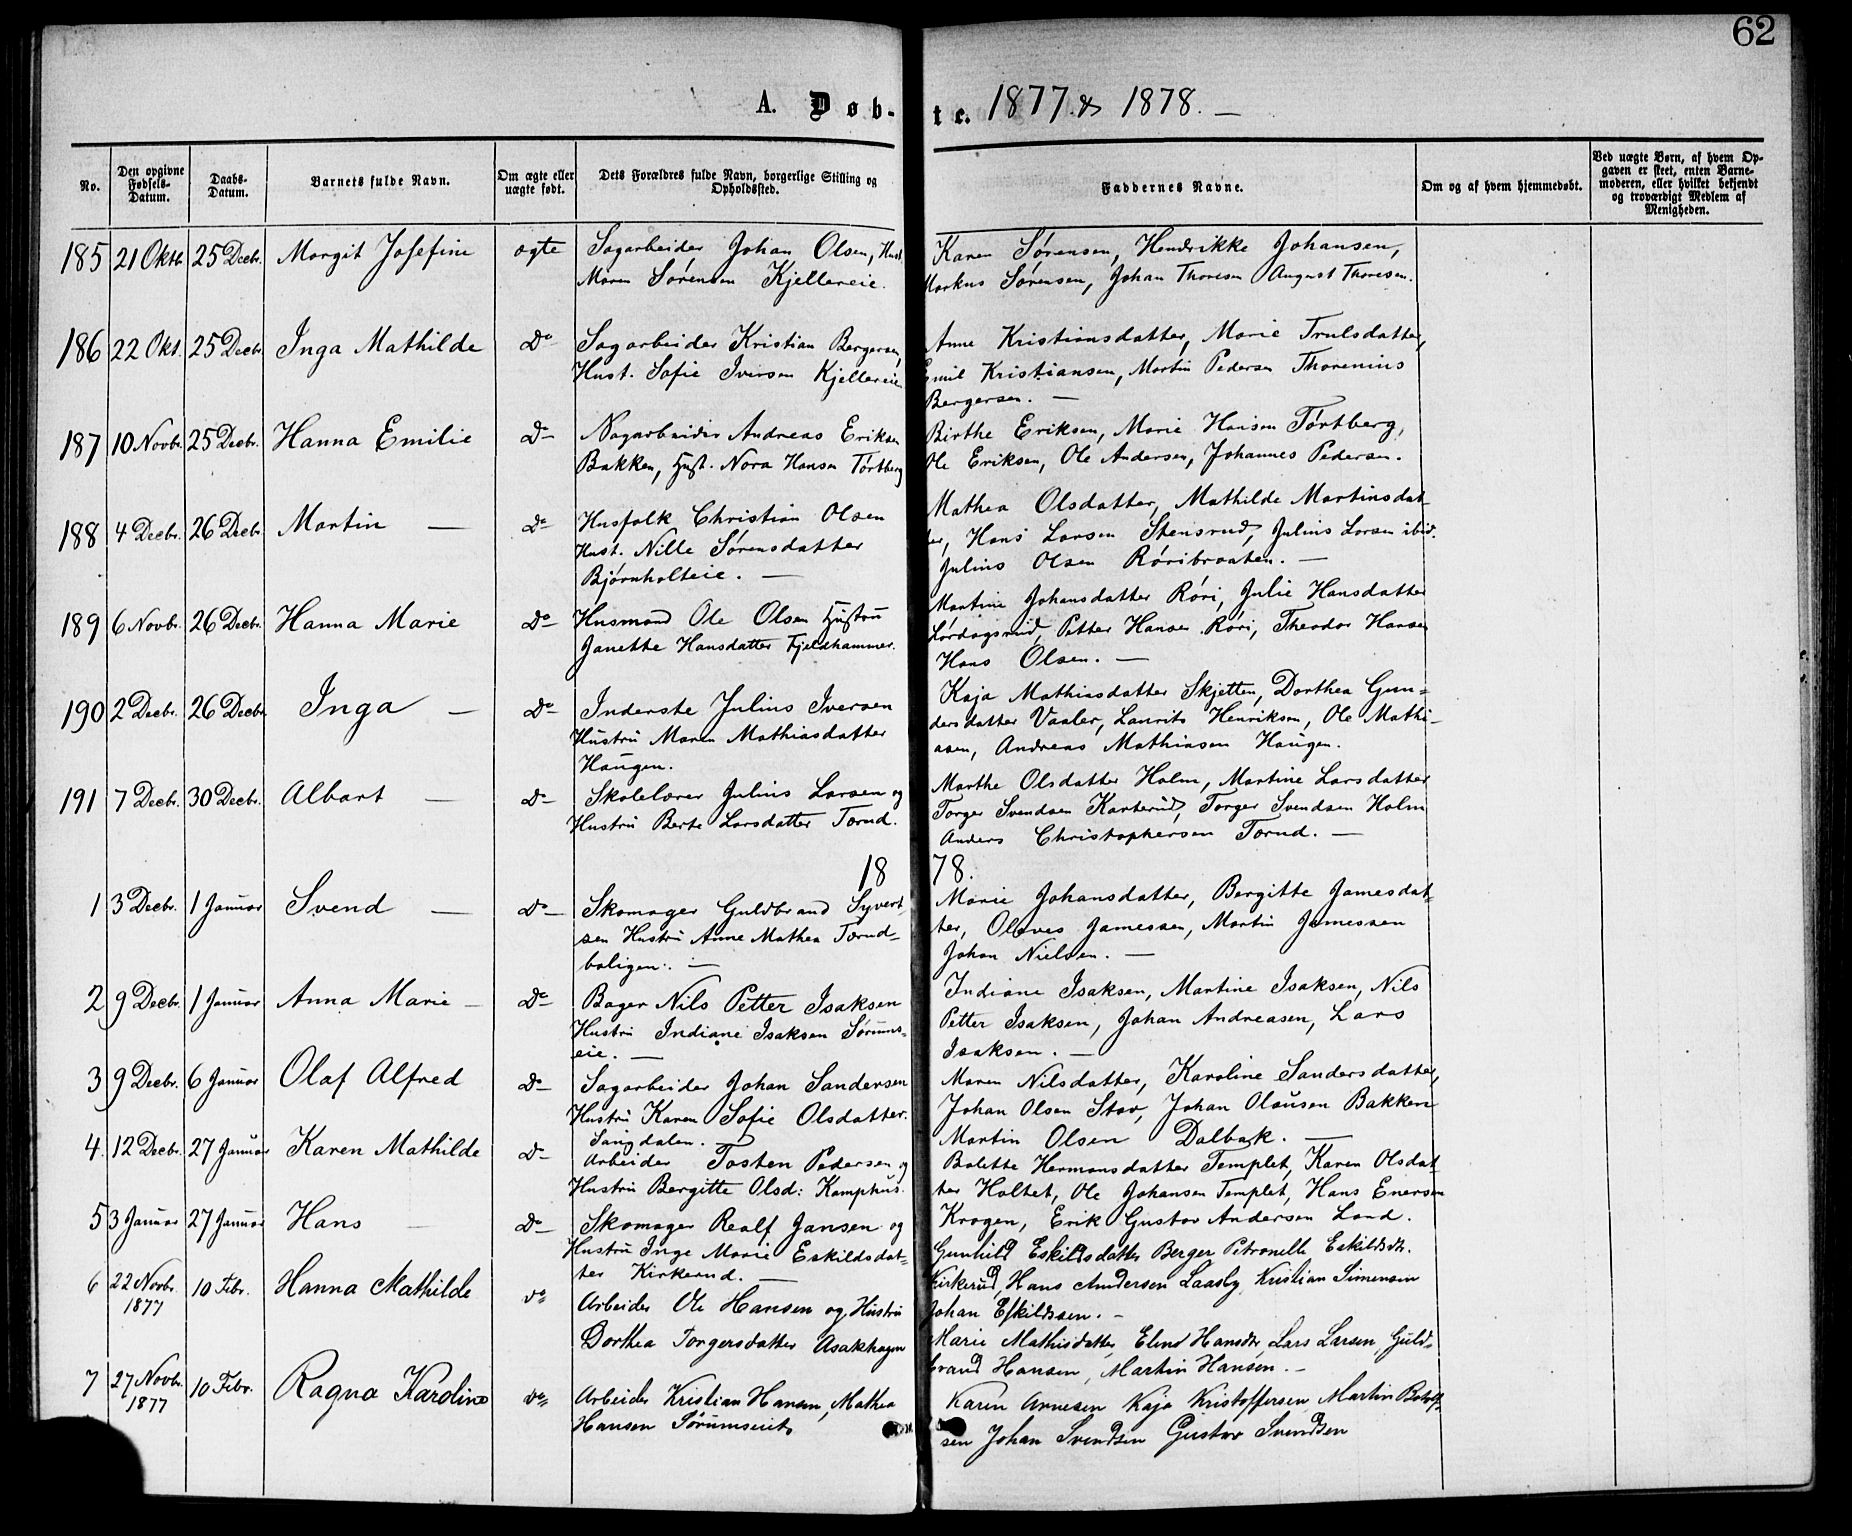 62
A. Døb-te. 1877 & 1878. —
No.
Den opgivne Fødsels-Datum.
Daabs-Datum.
Barnets fulde Navn.
Om ægte eller uægte født.
Dets Forældres fulde Navn, borgerlige Stilling og Opholdssted.
Faddernes Navne.
Om og af hvem hjemmedøbt.
Ved uægte Børn, af hvem Opgaven er skeet, enten Barnemoderen, eller hvilket bekjendt og troværdigt Medlem af Menigheden.
185 21 Oktb. 25 Decbr. Margit Josefine ægte Sagarbeider Johan Olsen, Hust.
Maren Sørensen Kjellereie.
Karen Sørensen, Hendrikke Johansen,
Markus Sørensen, Johan Thoresen August Thoresen.
186 22 Okt. 25 Decbr. Inga Mathilde Do Sagarbeider Kristian Bergersen,
Hust. Sofie Iversen Kjellereie
Anne Kristiansdatter, Marie Trulsdatter,
Emil Kristiansen, Martin Pedersen Thorenius
Bergersen. —
187 10 Novbr. 25 Decbr. Hanna Emilie Do Sagarbeider Andreas Eriksen
Bakken, Hust. Nora Hansen Tørtberg
Birthe Eriksen, Marie Hansen Tørtberg,
Ole Eriksen, Ole Andersen, Johannes Pedersen.
188 4 Decbr. 26 Decbr. Martin — Do Husfolk Christian Olsen
Hust. Nille Sørensdatter
Bjørnholteie. —
Mathea Olsdatter, Mathilde Martinsdat-
ter, Hans Larsen Stensrud, Julius Larsen ibid.
Julius Olsen Røribraaten. —
189 6 Novbr. 26 Decbr. Hanna Marie Do Husmand Ole Olsen Hustru
Janette Hansdatter Fjeldhammer.
Martine Johansdatter Røri, Julie Hansdatter
Lørdagsrud, Petter Hansen Røri, Theodor Hansen
Hans Olsen. —
190 2 Decbr. 26 Decbr. Inga — Do Inderste Julius Iversen
Hustru Maren Mathiasdatter
Haugen.
Kaja Mathiasdatter Skjetten, Dorthea Gun-
dersdatter Vaaler, Laurits Henriksen, Ole Mathi-
asen, Andreas Mathiasen Haugen.
191 7 Decbr. 30 Decbr. Albart — Do Skolelærer Julius Larsen og
Hustru Berte Larsdatter Tærud.
Marthe Olsdatter Holm, Martine Larsdatter
Torger Svendsen Karterud, Torger Svendsen Holm
Anders Christophersen Tærud. —
1878.
1 3 Decbr. 1 Januar Svend — Do Skomager Guldbrand Syvert-
sen Hustru Anne Mathea Tærud-
boligen. —
Marie Johansdatter, Bergitte Jamesdat-
ter, Olaves Jamessen, Martin Jamessen
Johan Nielsen. —
2 9 Decbr. 1 Januar Anna Marie — Do Bager Nils Petter Isaksen
Hustru Indiane Isaksen Sørums-
eie. —
Indiane Isaksen, Martine Isaksen, Nils
Petter Isaksen, Johan Andreasen, Lars
Isaksen. —
3 9 Decbr. 6 Januar Olaf Alfred Do Sagarbeider Johan Sandersen
Hustru Karen Sofie Olsdatter.
Sangdalen.
Maren Nilsdatter, Karoline Sandersdatter,
Johan Olsen Stav, Johan Olausen Bakken
Martin Olsen Dalbak. —
4. 12 Decbr. 27 Januar Karen Mathilde Do Arbeider Tosten Pedersen og
Hustru Bergitte Olsd: Kamphus.
Bolette Hermansdatter Templet, Karen Olsdat-
ter Holtet, Ole Johansen Templet, Hans Enersen
Krogen, Erik Gustav Andersen Land.
5 3 Januar 27 Januar Hans — Do Skomager Realf Jansen og
Hustru Inge Marie Eskildsdat-
ter Kirkerud. —
Gunhild Eskildsdatter Berger Petronelle Eskildsdtr.
Kirkerud, Hans Andersen Laasby Kristian Simensen
Johan Eskildssen. —
6 22 Novbr. 1877 10 Febr. Hanna Mathilde Do Arbeider Ole Hansen og Hustru
Dorthea Torgersdatter Asakhagen
Marie Mathisdatter, Eline Hansdtr, Lars Larsen, Guld-
brand Hansen, Martin Hansen. —
7 27 Novbr. 1877 10 Febr. Ragna Karoline Do Arbeider Kristian Hansen, Mathea
Hansen Sørumseiet
Karen Arnesen Kaja Kristoffersen, Martin Botolf-
sen Johan Svendsen Gustav Svendsen